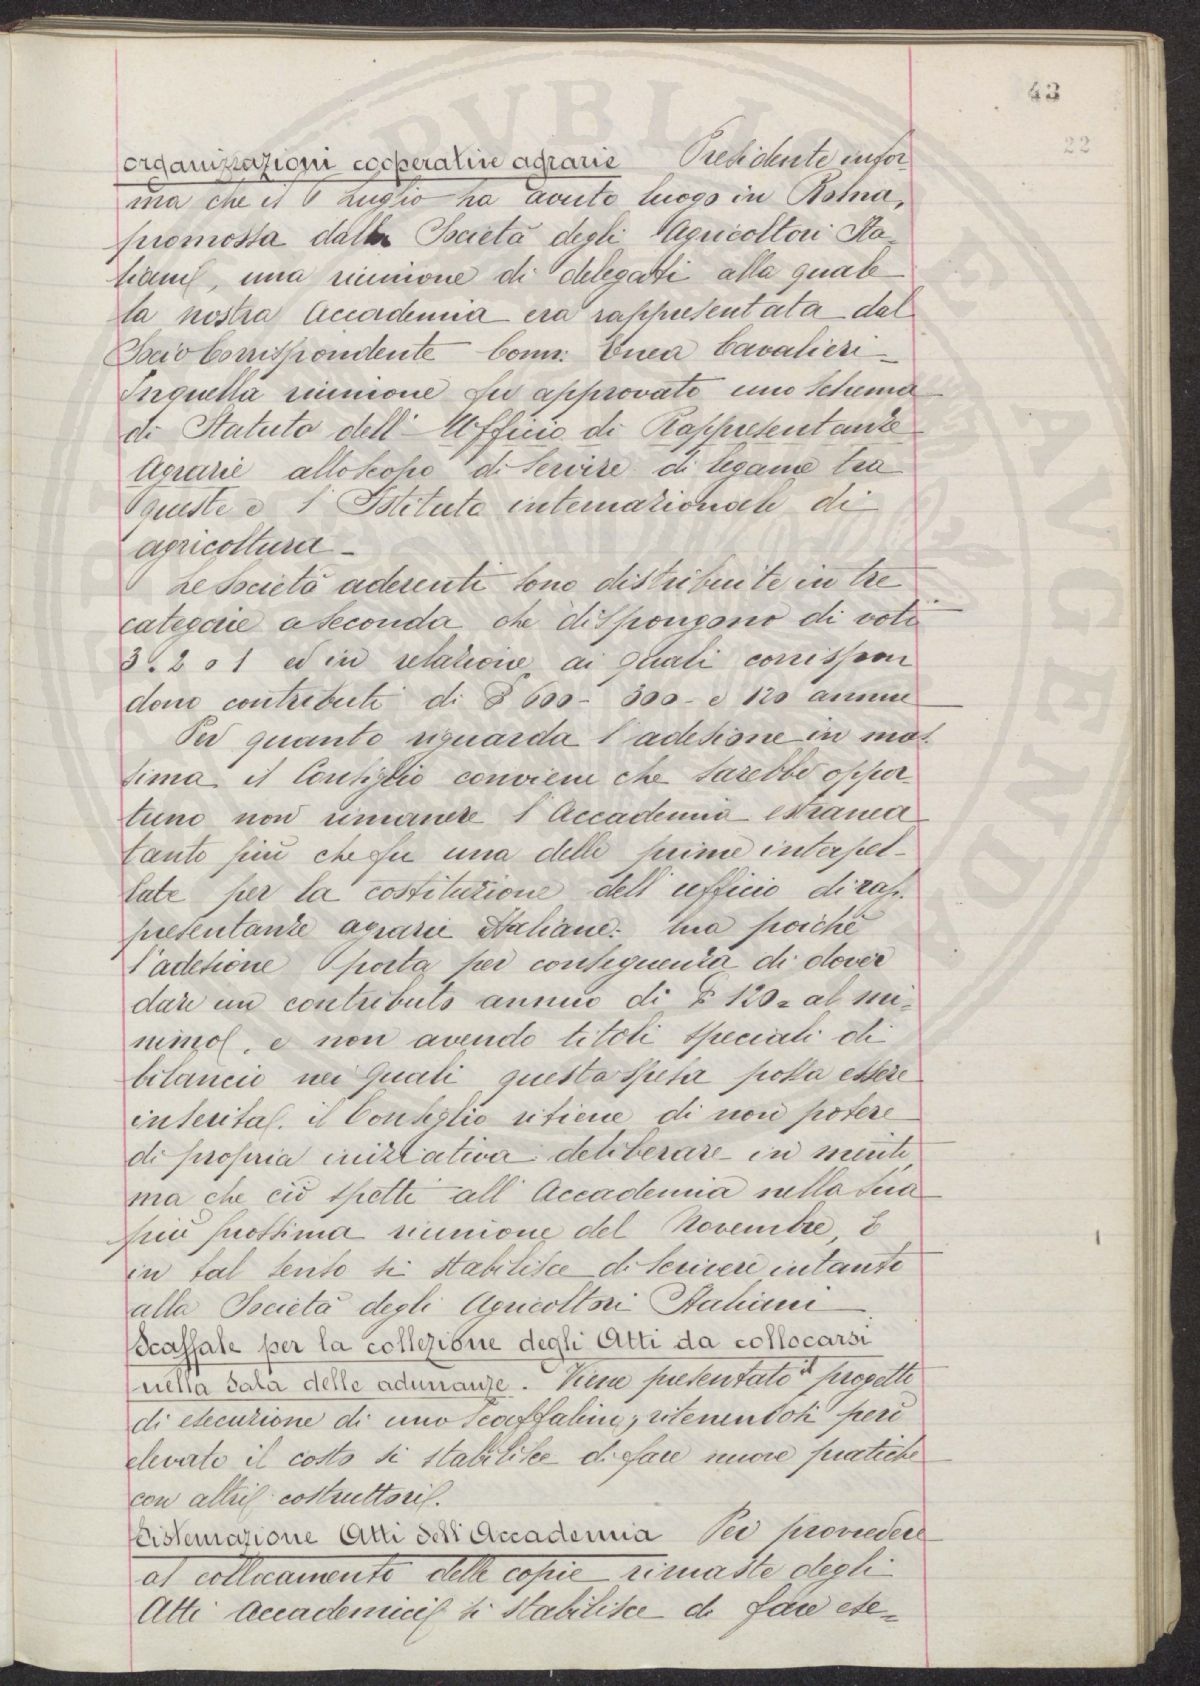 43
22
organizzazioni cooperative agrarie Presidente infor-
ma che il 6 Luglio ha avuto luogo in Roma,
promossa dalla Società degli Agricoltori Ita-
liani, una riunione di delegati alla quale
la nostra Accademia era rappresentata dal
Socio Corrispondente Comm: Enea Cavalieri -
In quella riunione fu approvato uno schema
di Statuto dell' Ufficio di Rappresentanze
Agrarie allo scopo di servire di legame tra
queste e l' Istituto internazionale di
agricoltura -
Le Società aderenti sono distribuite in tre
categorie a seconda che dispongono di voti
3. 2 o 1 ed in relazione ai quali corrispon
dono contributi di £ 600 - 300 - e 120 annue
Per quanto riguarda l'adesione in mas-
sima il Consiglio conviene che sarebbe oppor-
tuno non rimanere l'Accademia estranea
tanto più che fu una delle prime interpel-
late per la costituzione dell' ufficio di rap-
presentanze agrarie Italiane: ma poichè
l'adesione porta per conseguenza di dover
dare un contributo annuo di £ 120 = al mi-
nimo, e non avendo titoli speciali di
bilancio nei quali questa spesa possa essere
inserita, il Consiglio ritiene di non potere
di propria iniziativa deliberare in merito,
ma che ciò spetti all' Accademia nella sua
più prossima riunione del Novembre, E
in tal senso si stabilisce di scrivere intanto
alla Società degli Agricoltori Italiani
Scaffale per la collezione degli Atti da collocarsi
nella Sala delle adunanze. Viene presentato il progetto
di esecuzione di uno scaffaline, ritenendosi però
elevato il costo si stabilisce di fare nuove pratiche
con altri costruttori.
Sistemazione Atti dell'Accademia Per provvedere
al collocamento delle copie rimaste degli
Atti Accademici si stabilisce di fare ese=